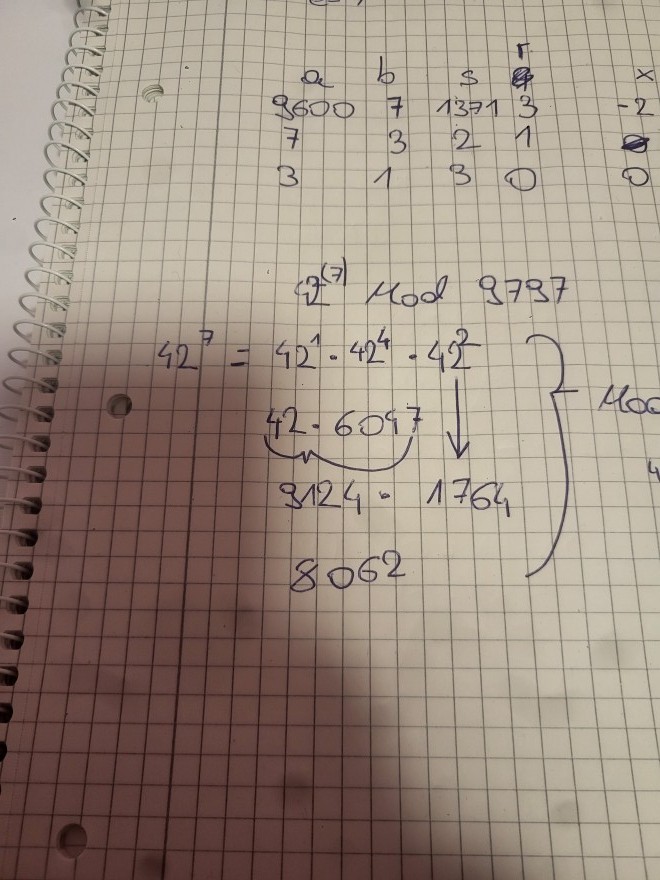 r
a b s x
9600 7 1371 3 -2
7 3 2 1
3 1 3 0 0
42^(7) Mod 9797
42^7 = 42^1 · 42^4 · 42^2
42 · 6047
9124 · 1764
8062